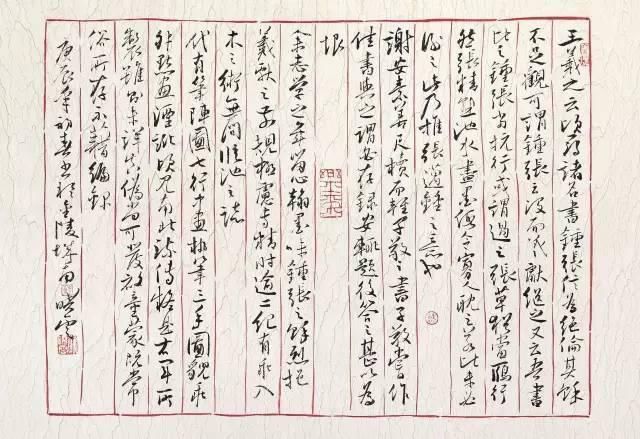 王羲之云頃尋諸名書鍾張信為絕倫其餘
不足觀可謂鍾張之沒而羲獻繼之又云吾書
比之鍾張當抗行或謂過之張草猶當鴈行
然張精熟池水盡墨假令寡人耽之若此未必
謝之此乃推張邁鍾之意也
謝安素善尺牘而輕子敬之書子敬嘗作
佳書與之謂必存錄安輒題後答之甚以為
恨
余志學之年留心翰墨味鍾張之餘烈挹
羲獻之前規極慮專精時逾二紀有乖入
木之術無間臨池之志
代有筆陣圖七行中畫執筆三手圖貌乖
舛點畫湮訛頃見南北流傳疑是右軍所
製雖則未詳真偽尚可發啟童蒙既常
俗所存不藉編錄
庚辰年初春書於金陵城南